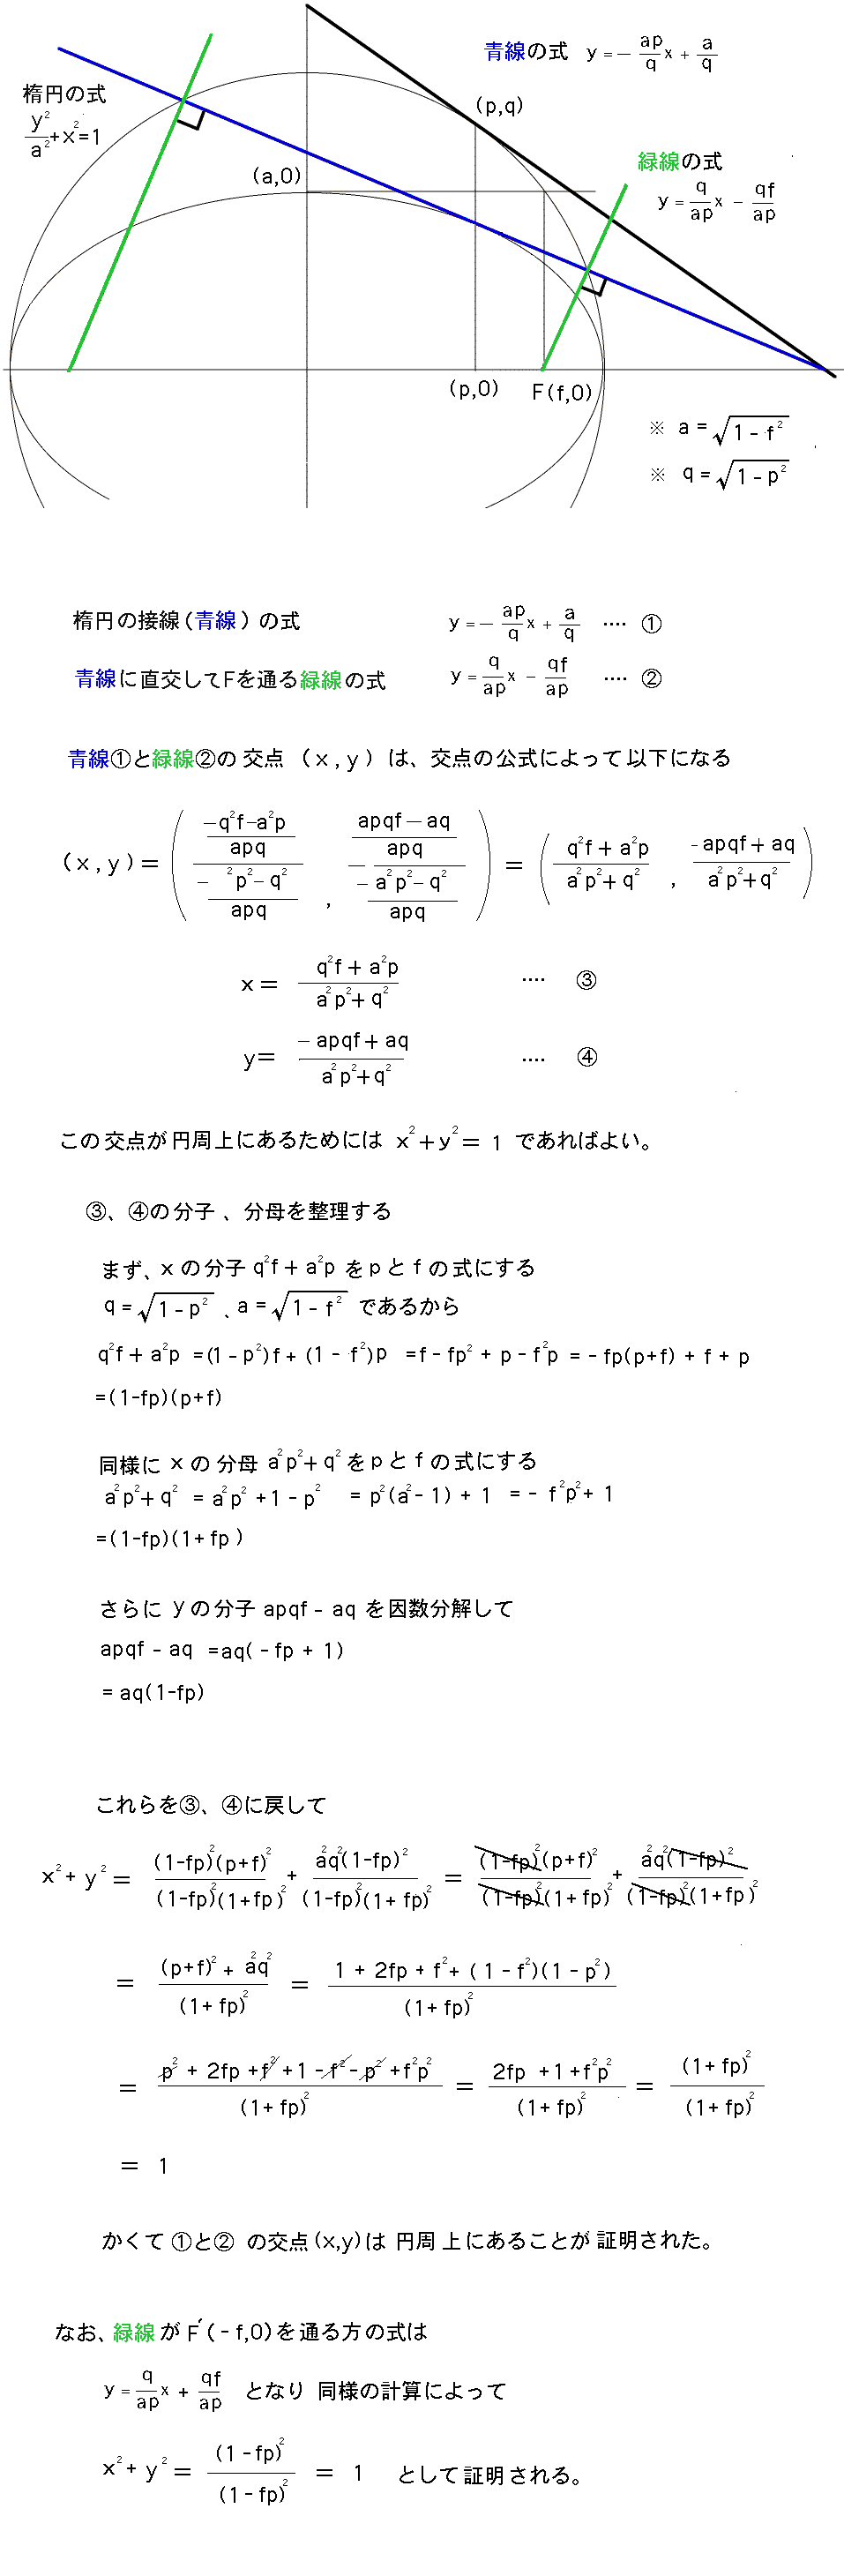 青線の式 y=-ap/q x+a/q
楕円の式
y²/a²+x²=1
(p,q)
緑線の式
y=q/ap x-qf/ap
(a,0)
(p,0) F(f,0)
※ a=√(1-f²)
※ q=√(1-p²)
楕円の接線(青線)の式 y=-ap/q x+a/q ‥‥ ①
青線に直交してFを通る緑線の式 y=q/ap x-qf/ap ‥‥ ②
青線①と緑線②の交点 (x,y) は、交点の公式によって以下になる
(x,y)=( ((-q²f-a²p)/apq)/((-²p²-q²)/apq) , -((apqf-aq)/apq)/((-a²p²-q²)/apq) ) = ( (q²f+a²p)/(a²p²+q²) , (-apqf+aq)/(a²p²+q²) )
x= (q²f+a²p)/(a²p²+q²) ‥‥ ③
y= (-apqf+aq)/(a²p²+q²) ‥‥ ④
この交点が円周上にあるためには x²+y²=1 であればよい。
③、④の分子、分母を整理する
まず、xの分子 q²f+a²p をpとfの式にする
q=√(1-p²) 、a=√(1-f²) であるから
q²f+a²p =(1-p²)f+(1-f²)p =f-fp²+p-f²p =-fp(p+f)+f+p
=(1-fp)(p+f)
同様にxの分母 a²p²+q² をpとfの式にする
a²p²+q² =a²p²+1-p² =p²(a²-1)+1 =-f²p²+1
=(1-fp)(1+fp)
さらにyの分子 apqf-aq を因数分解して
apqf-aq =aq(-fp+1)
=aq(1-fp)
これらを③、④に戻して
x²+y²= (1-fp)²(p+f)²/(1-fp)²(1+fp)² + a²q²(1-fp)²/(1-fp)²(1+fp)² = (1-fp)²(p+f)²/(1-fp)²(1+fp)² + a²q²(1-fp)²/(1-fp)²(1+fp)²
= ((p+f)²+a²q²)/(1+fp)² = (1+2fp+f²+(1-f²)(1-p²))/(1+fp)²
= (p²+2fp+f²+1-f²-p²+f²p²)/(1+fp)² = (2fp+1+f²p²)/(1+fp)² = (1+fp)²/(1+fp)²
= 1
かくて①と②の交点(x,y)は円周上にあることが証明された。
なお、緑線がF′(-f,0)を通る方の式は
y=q/ap x+qf/ap となり 同様の計算によって
x²+y²= (1-fp)²/(1-fp)² = 1 として証明される。